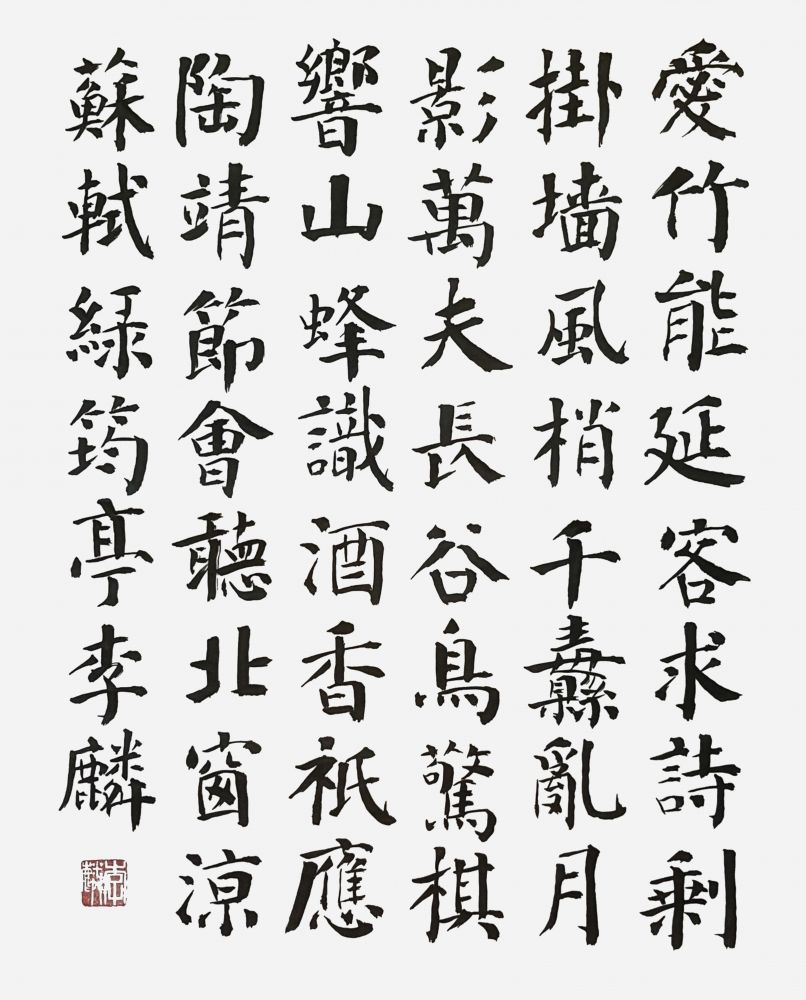 愛竹能延客求詩剩
掛墻風梢千纛亂月
影萬夫長谷鳥驚棋
響山蜂識酒香祇應
陶靖節會聽北窗涼
蘇軾綠筠亭李麟